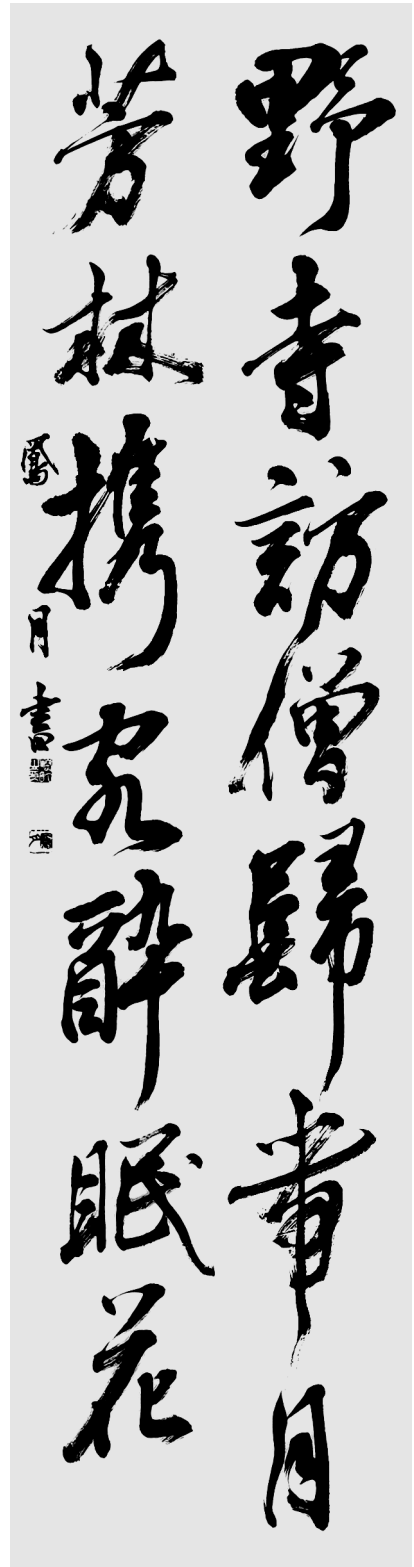 野寺訪僧歸帯月
芳林携客醉眠花
鳳月書